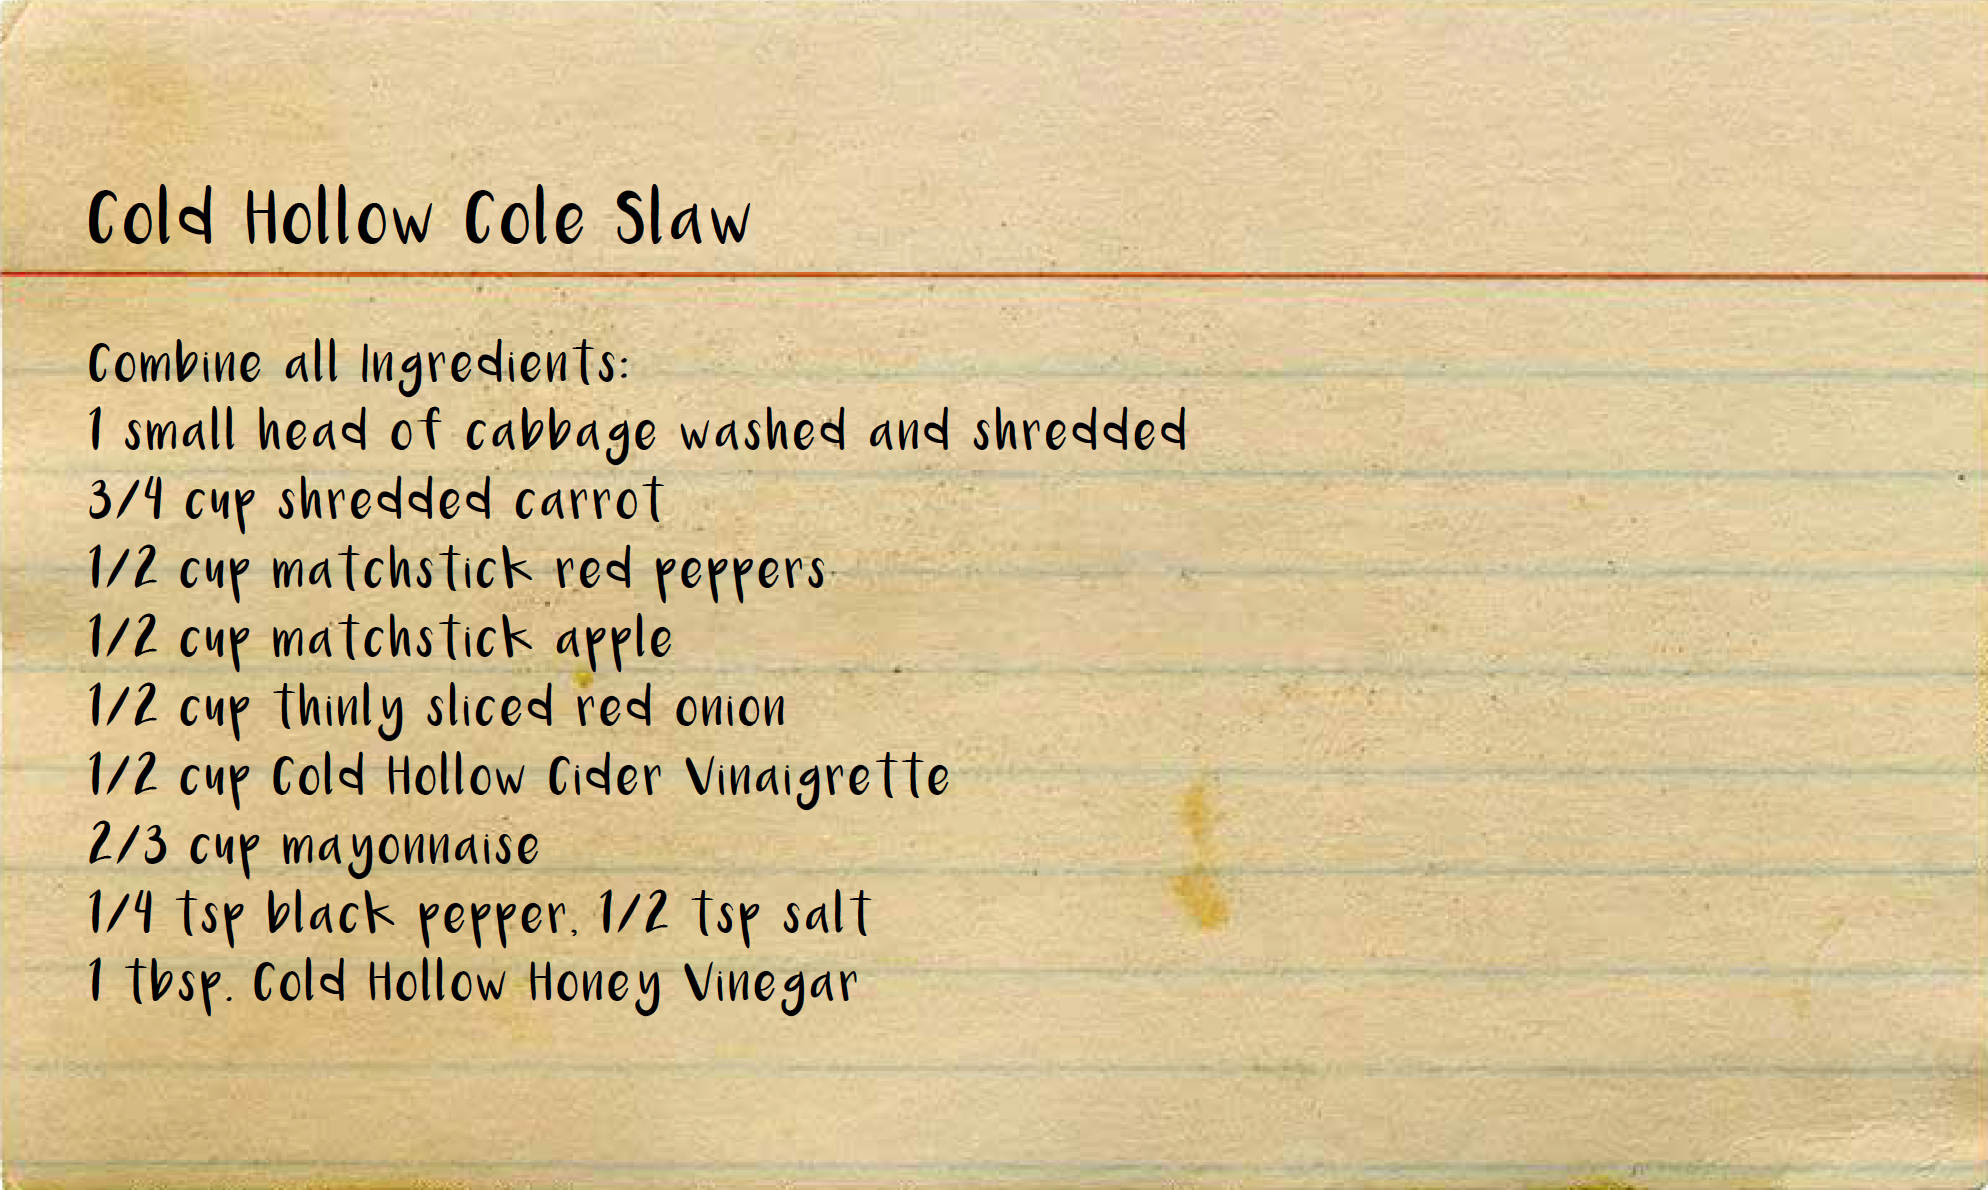 Cold Hollow Cole Slaw
Combine all Ingredients:
1 small head of cabbage washed and shredded
3/4 cup shredded carrot
1/2 cup matchstick red peppers
1/2 cup matchstick apple
1/2 cup thinly sliced red onion
1/2 cup Cold Hollow Cider Vinaigrette
2/3 cup mayonnaise
1/4 tsp black pepper, 1/2 tsp salt
1 tbsp. Cold Hollow Honey Vinegar